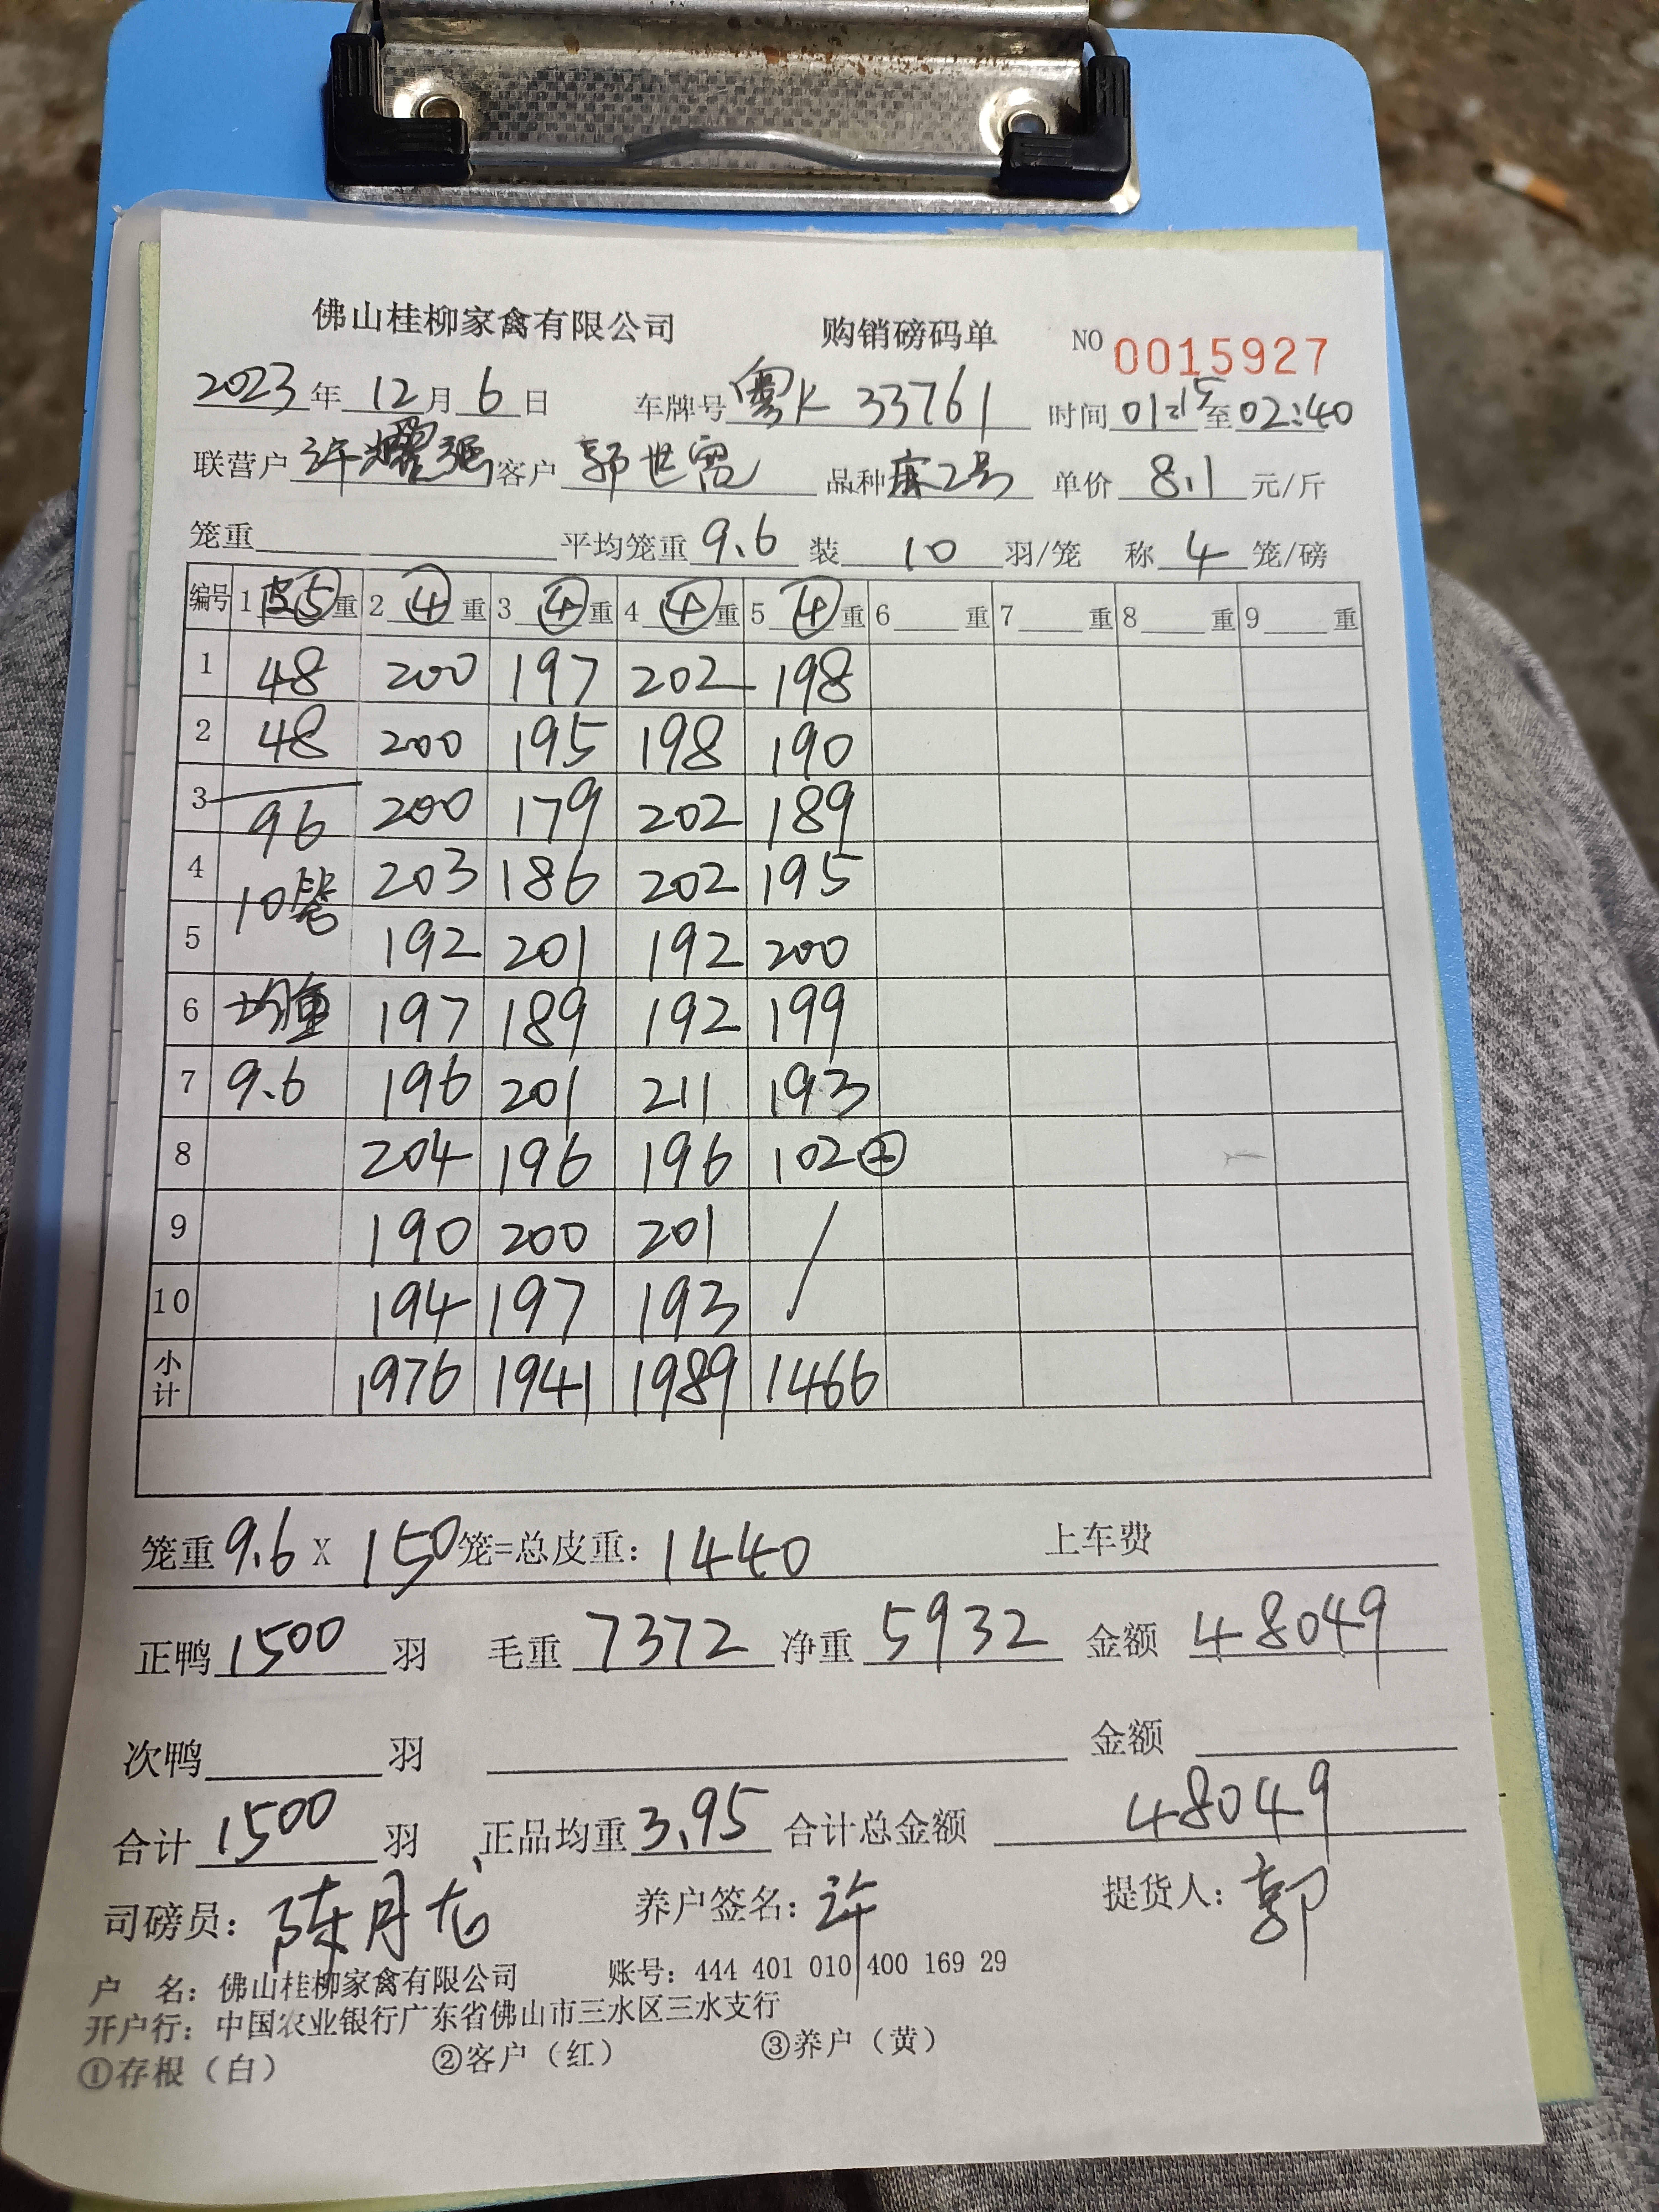 佛山桂柳家禽有限公司 购销磅码单 NO 0015927
2023年12月6日 车牌号 粤K 33761 时间 01:15至02:40
联营户 许耀强 客户 郭世 品种 麻2号 单价 8.1 元/斤
笼重 平均笼重 9.6 装 10 羽/笼 称 4 笼/磅
编号 1 皮⑤重 2 ④ 重 3 ④ 重 4 ④ 重 5 ④ 重 6 重 7 重 8 重 9 重
1 48 200 197 202 198
2 48 200 195 198 190
3 96 200 179 202 189
4 10 203 186 202 195
5 192 201 192 200
6 均重 197 189 192 199
7 9.6 196 201 211 193
8 204 196 196 102②
9 190 200 201 /
10 194 197 193
小计 1976 1941 1989 1466
笼重 9.6 X 150 笼=总皮重: 1440 上车费
正鸭 1500 羽 毛重 7372 净重 5932 金额 48049
次鸭 羽 金额
合计 1500 羽 正品均重 3.95 合计总金额 48049
司磅员: 陈月龙 养户签名: 许 提货人: 郭
户 名: 佛山桂柳家禽有限公司 账号: 444 401 010 400 169 29
开户行: 中国农业银行广东省佛山市三水区三水支行
①存根（白） ②客户（红） ③养户（黄）